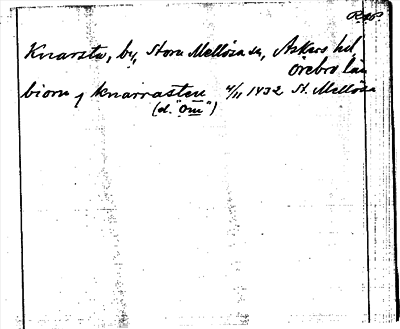 RAP
Knarsta, by, Stora Mellösa sn, Askers hd,
Örebro län
biorn j knarrasten 4/11 1432 St. Mellösa
(el. "om")